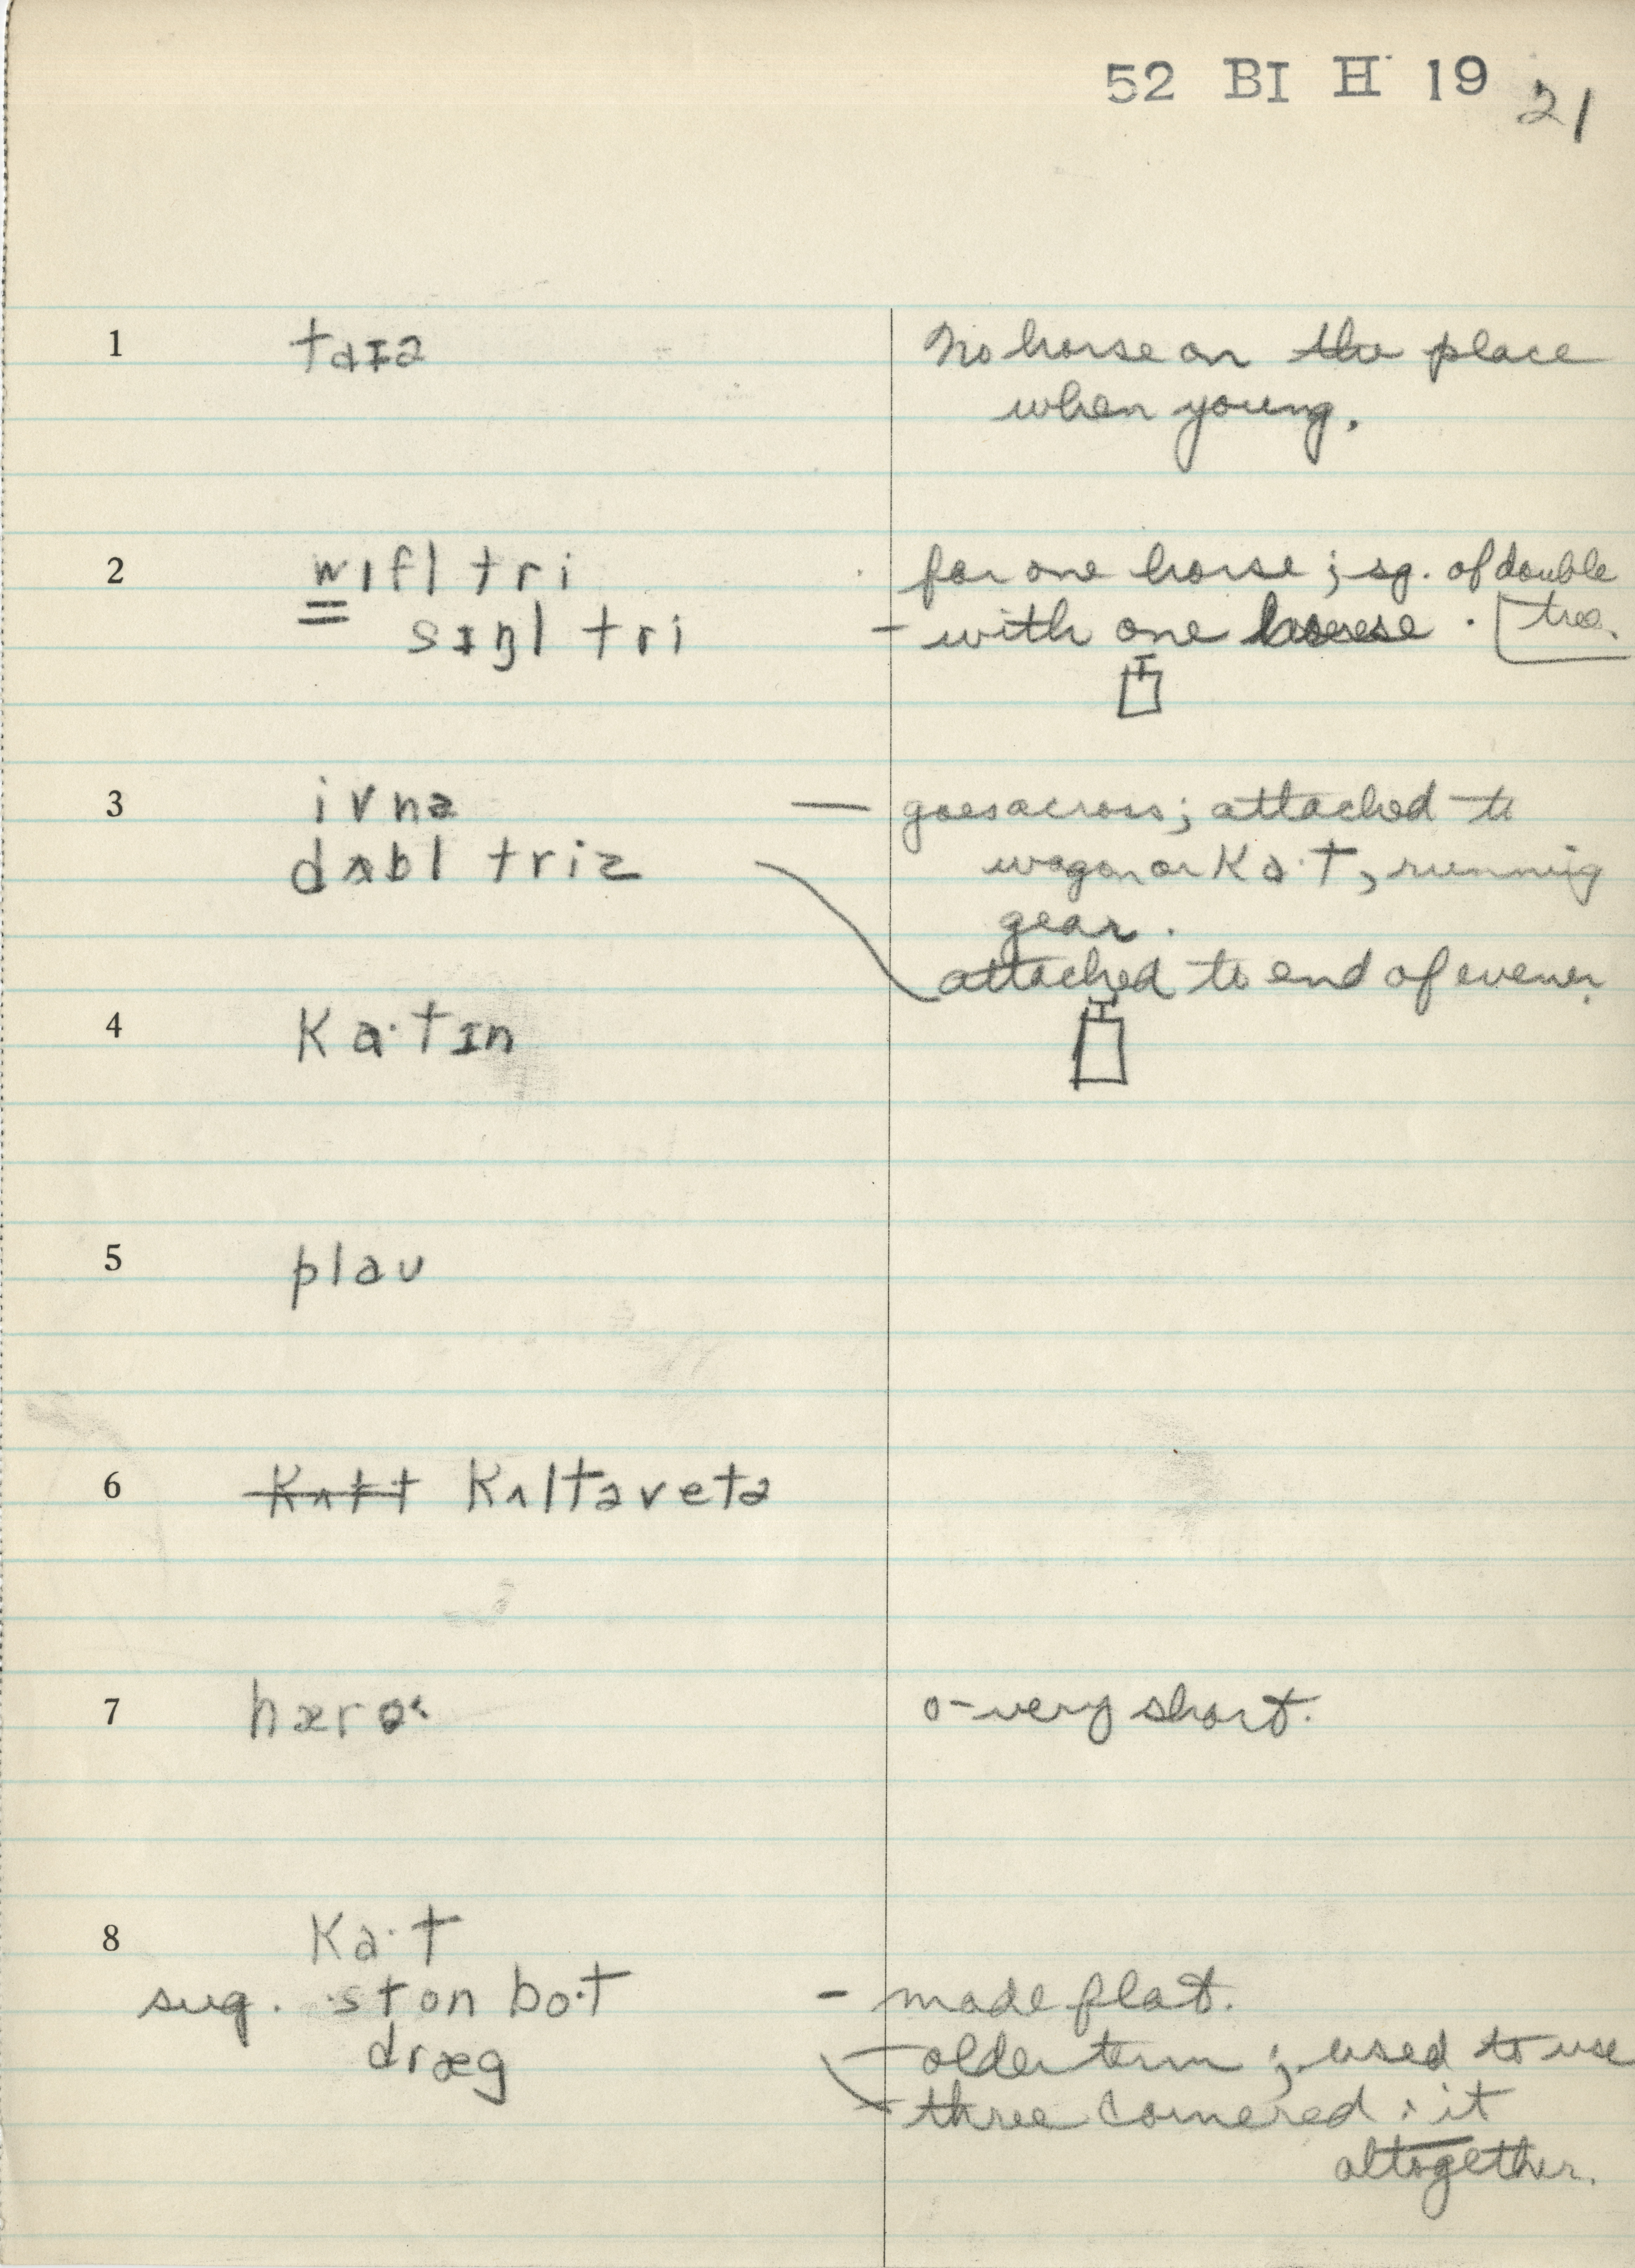 52 BI H 19 21
1 taɪə No horse on the place
when young.
2 wɪfl tri for one horse; sg. of double
tree.
sɪŋl tri – with one horse.
3 ivnə — goes across; attached to
dʌbl triz wagon or ka·t, running
gear.
attached to end of evener.
4 ka·tɪn
5 plaʊ
6 kʌltəvetə
7 hærə o – very short.
8 ka·t
sug. ston bo·t – made flat.
dræg – older term; used to use
three cornered; it
altogether.